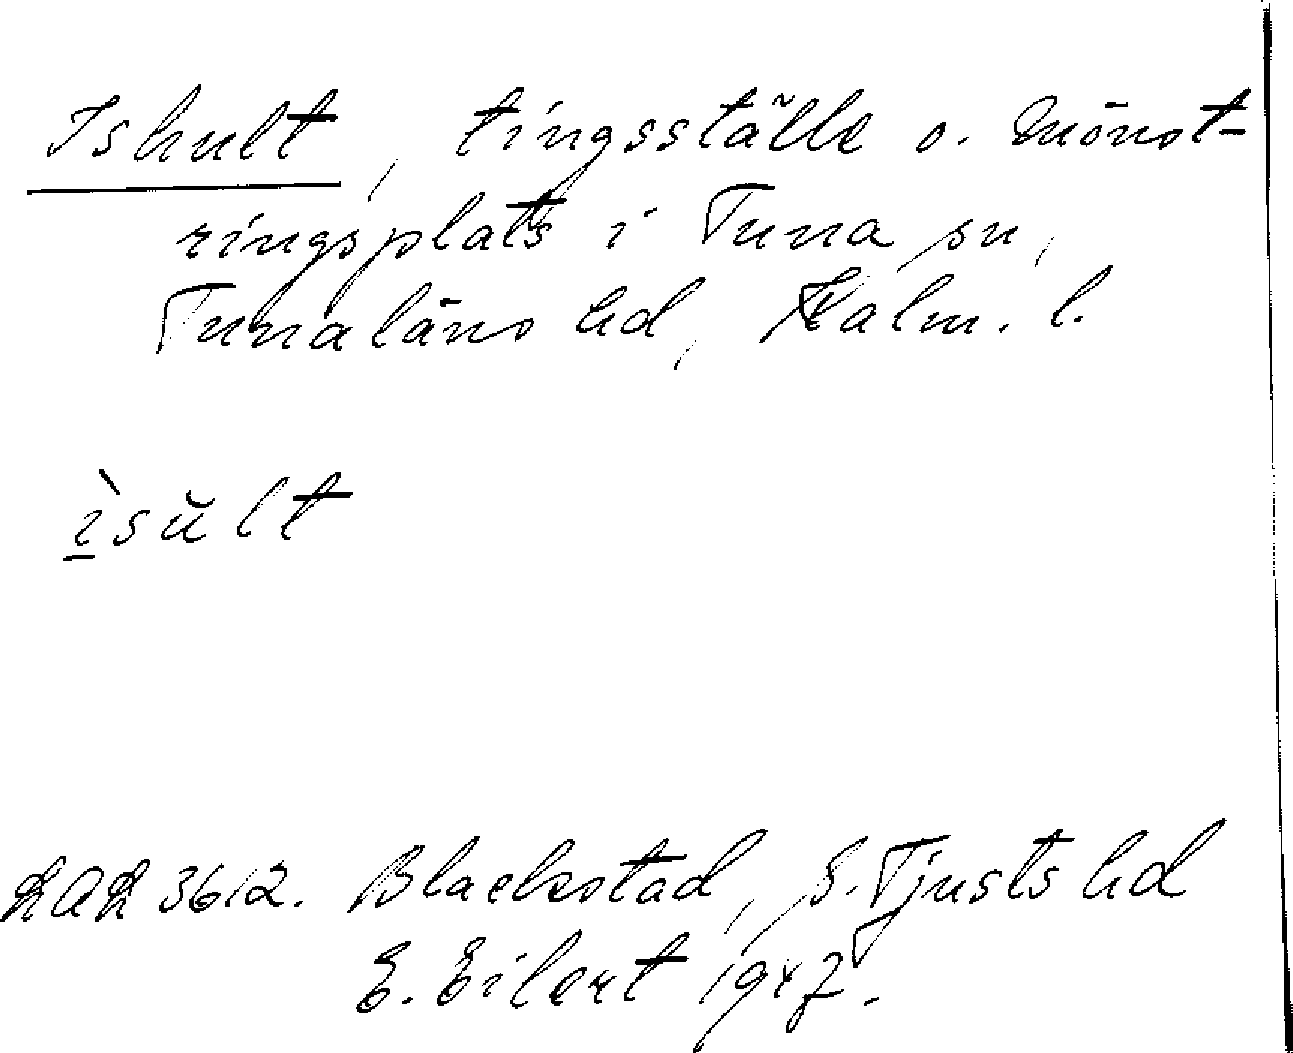 Ishult, tingsställe o. mönst-
ringsplats i Tuna sn,
Tunaläns hd, Kalm. l.
ìsŭlt
3612. Blackstad, S. Tjusts hd
E. Eilert 1947.